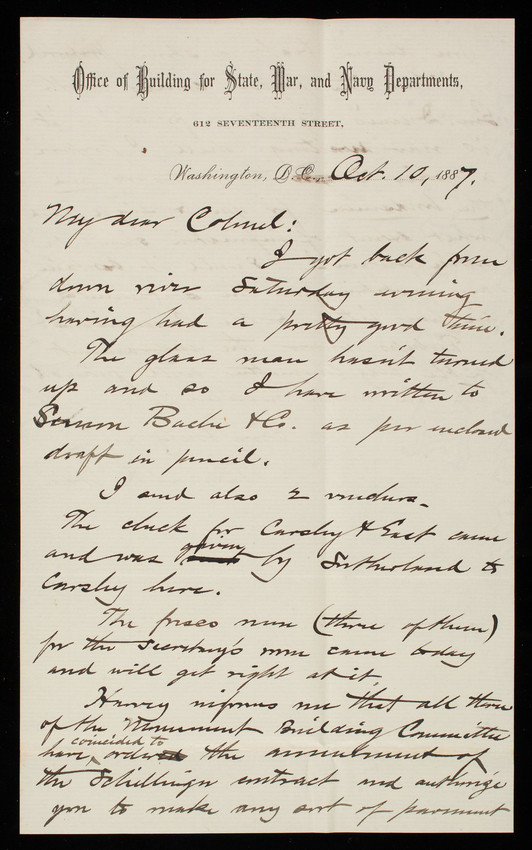 Office of Building for State, War, and Navy Departments,
612 SEVENTEENTH STREET,
Washington, D.C., Oct. 10, 1887.
My dear Colonel:
I got back from
down river Saturday evening
having had a pretty good time.
The glass man hasn't turned
up and so I have written to
Semon Bache & Co. as per inclosed
draft in pencil.
I send also 2 vouchers.
The check for Carsley & East came
and was giving by Sutherland to
Carsley here.
The fresco men (three of them)
for the Secretary's room came today
and will get right at it.
Harvey informs me that all three
of the Monument Building Committee
coincided to
have ordered the amendment of
the Schillinger contract and authorize
you to make any sort of pavement